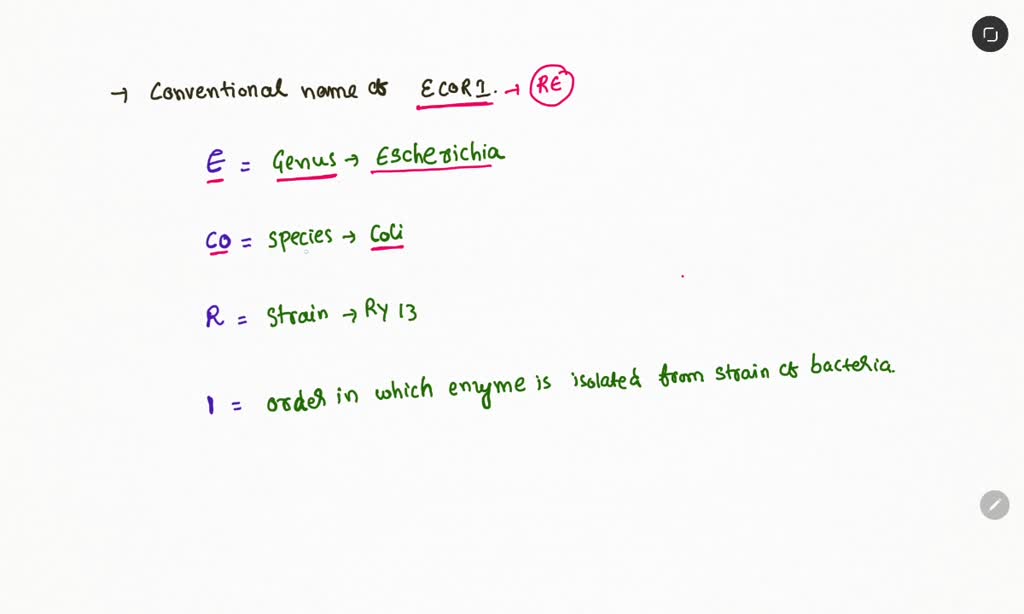 → Conventional name of ECORI. → RE
E = Genus → Escherichia
CO = species → Coli
R = Strain → Ry 13
1 = order in which enzyme is isolated from strain of bacteria.